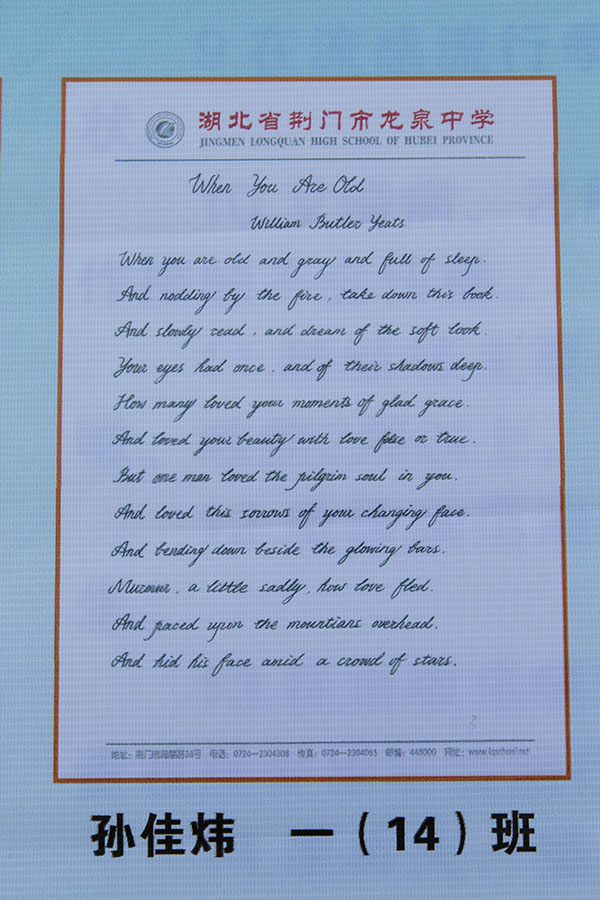 湖北省荆门市龙泉中学
JINGMEN LONGQUAN HIGH SCHOOL OF HUBEI PROVINCE
When You Are Old
William Butler Yeats
When you are old and gray and full of sleep.
And nodding by the fire, take down this book.
And slowly read, and dream of the soft look.
Your eyes had once, and of their shadows deep.
How many loved your moments of glad grace.
And loved your beauty with love false or true.
But one man loved the pilgrim soul in you.
And loved this sorrows of your changing face.
And bending down beside the glowing bars.
Murmur, a little sadly, how love fled.
And paced upon the mountians overhead.
And hid his face amid a crowd of stars.
地址：荆门市海慧路38号 电话：0724—2304308 传真：0724—2304065 邮编：448000 网址：www.lqschool.net
孙佳炜 一（14）班